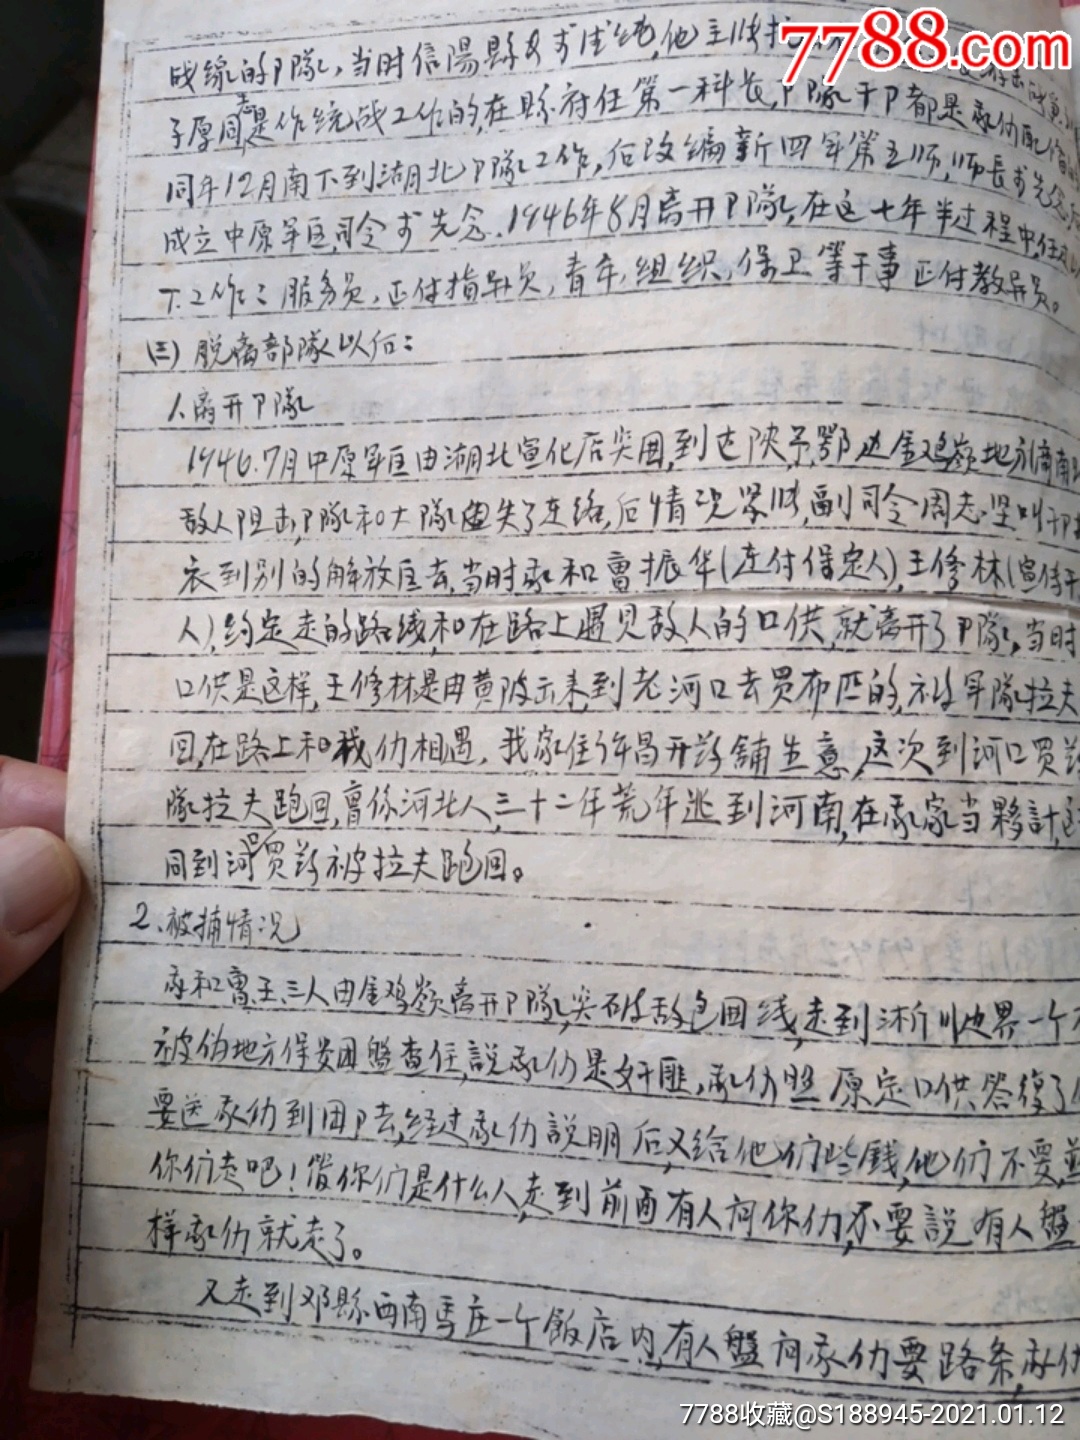 7788.com
战线的卩隊,当时信陽縣
子厚同志是作统战工作的,在縣府任第一科长,卩隊干卩都是我们配
同年12月南下到湖北卩隊工作,后改编新四军第五师,师長李先念
成立中原军区,司令李先念.1946年8月离开卩隊,在这七年半过程中,任
下.工作:服务员,正付指导员,青年,组织,保卫等干事 正付教导员。
(三)脱离部隊以后:
1.离开卩隊
1946.7月中原军区由湖北宣化店突围,到达陕,予,鄂边金鸡嶺地方(商南
敌人阻击,卩隊和大隊失了连络,后情况紧张,副司令周志坚叫干卩
衣到别的解放区去,当时我和曹振华(连付保定人),王修林(宣传干
人),约定走的路线和在路上遇见敌人的口供,就离开了卩隊。当时
口供是这样,王修林是由黄陂出来到老河口去買布匹的,被军隊拉夫
回,在路上和我们相遇。我家住许昌开药舖生意,这次到河口買药
隊拉夫跑回,曹係河北人,三十二年荒年逃到河南,在我家当夥計,
同到河口買药被拉夫跑回。
2.被捕情况
我和曹.王.三人由金鸡嶺离开卩隊,突破敌包围线,走到淅川边界一个
被伪地方保安团盤查住,説我们是奸匪,我们照原定口供答復了
要送我们到团卩去,经过我们説明后,又给他们些錢,他们不要,並
你们走吧!管你们是什么人,走到前面有人问你们,不要説有人盤
样我们就走了。
又走到邓縣西南馬庄一个飯店内,有人盤问我们要路条,我们
7788收藏@S188945-2021.01.12